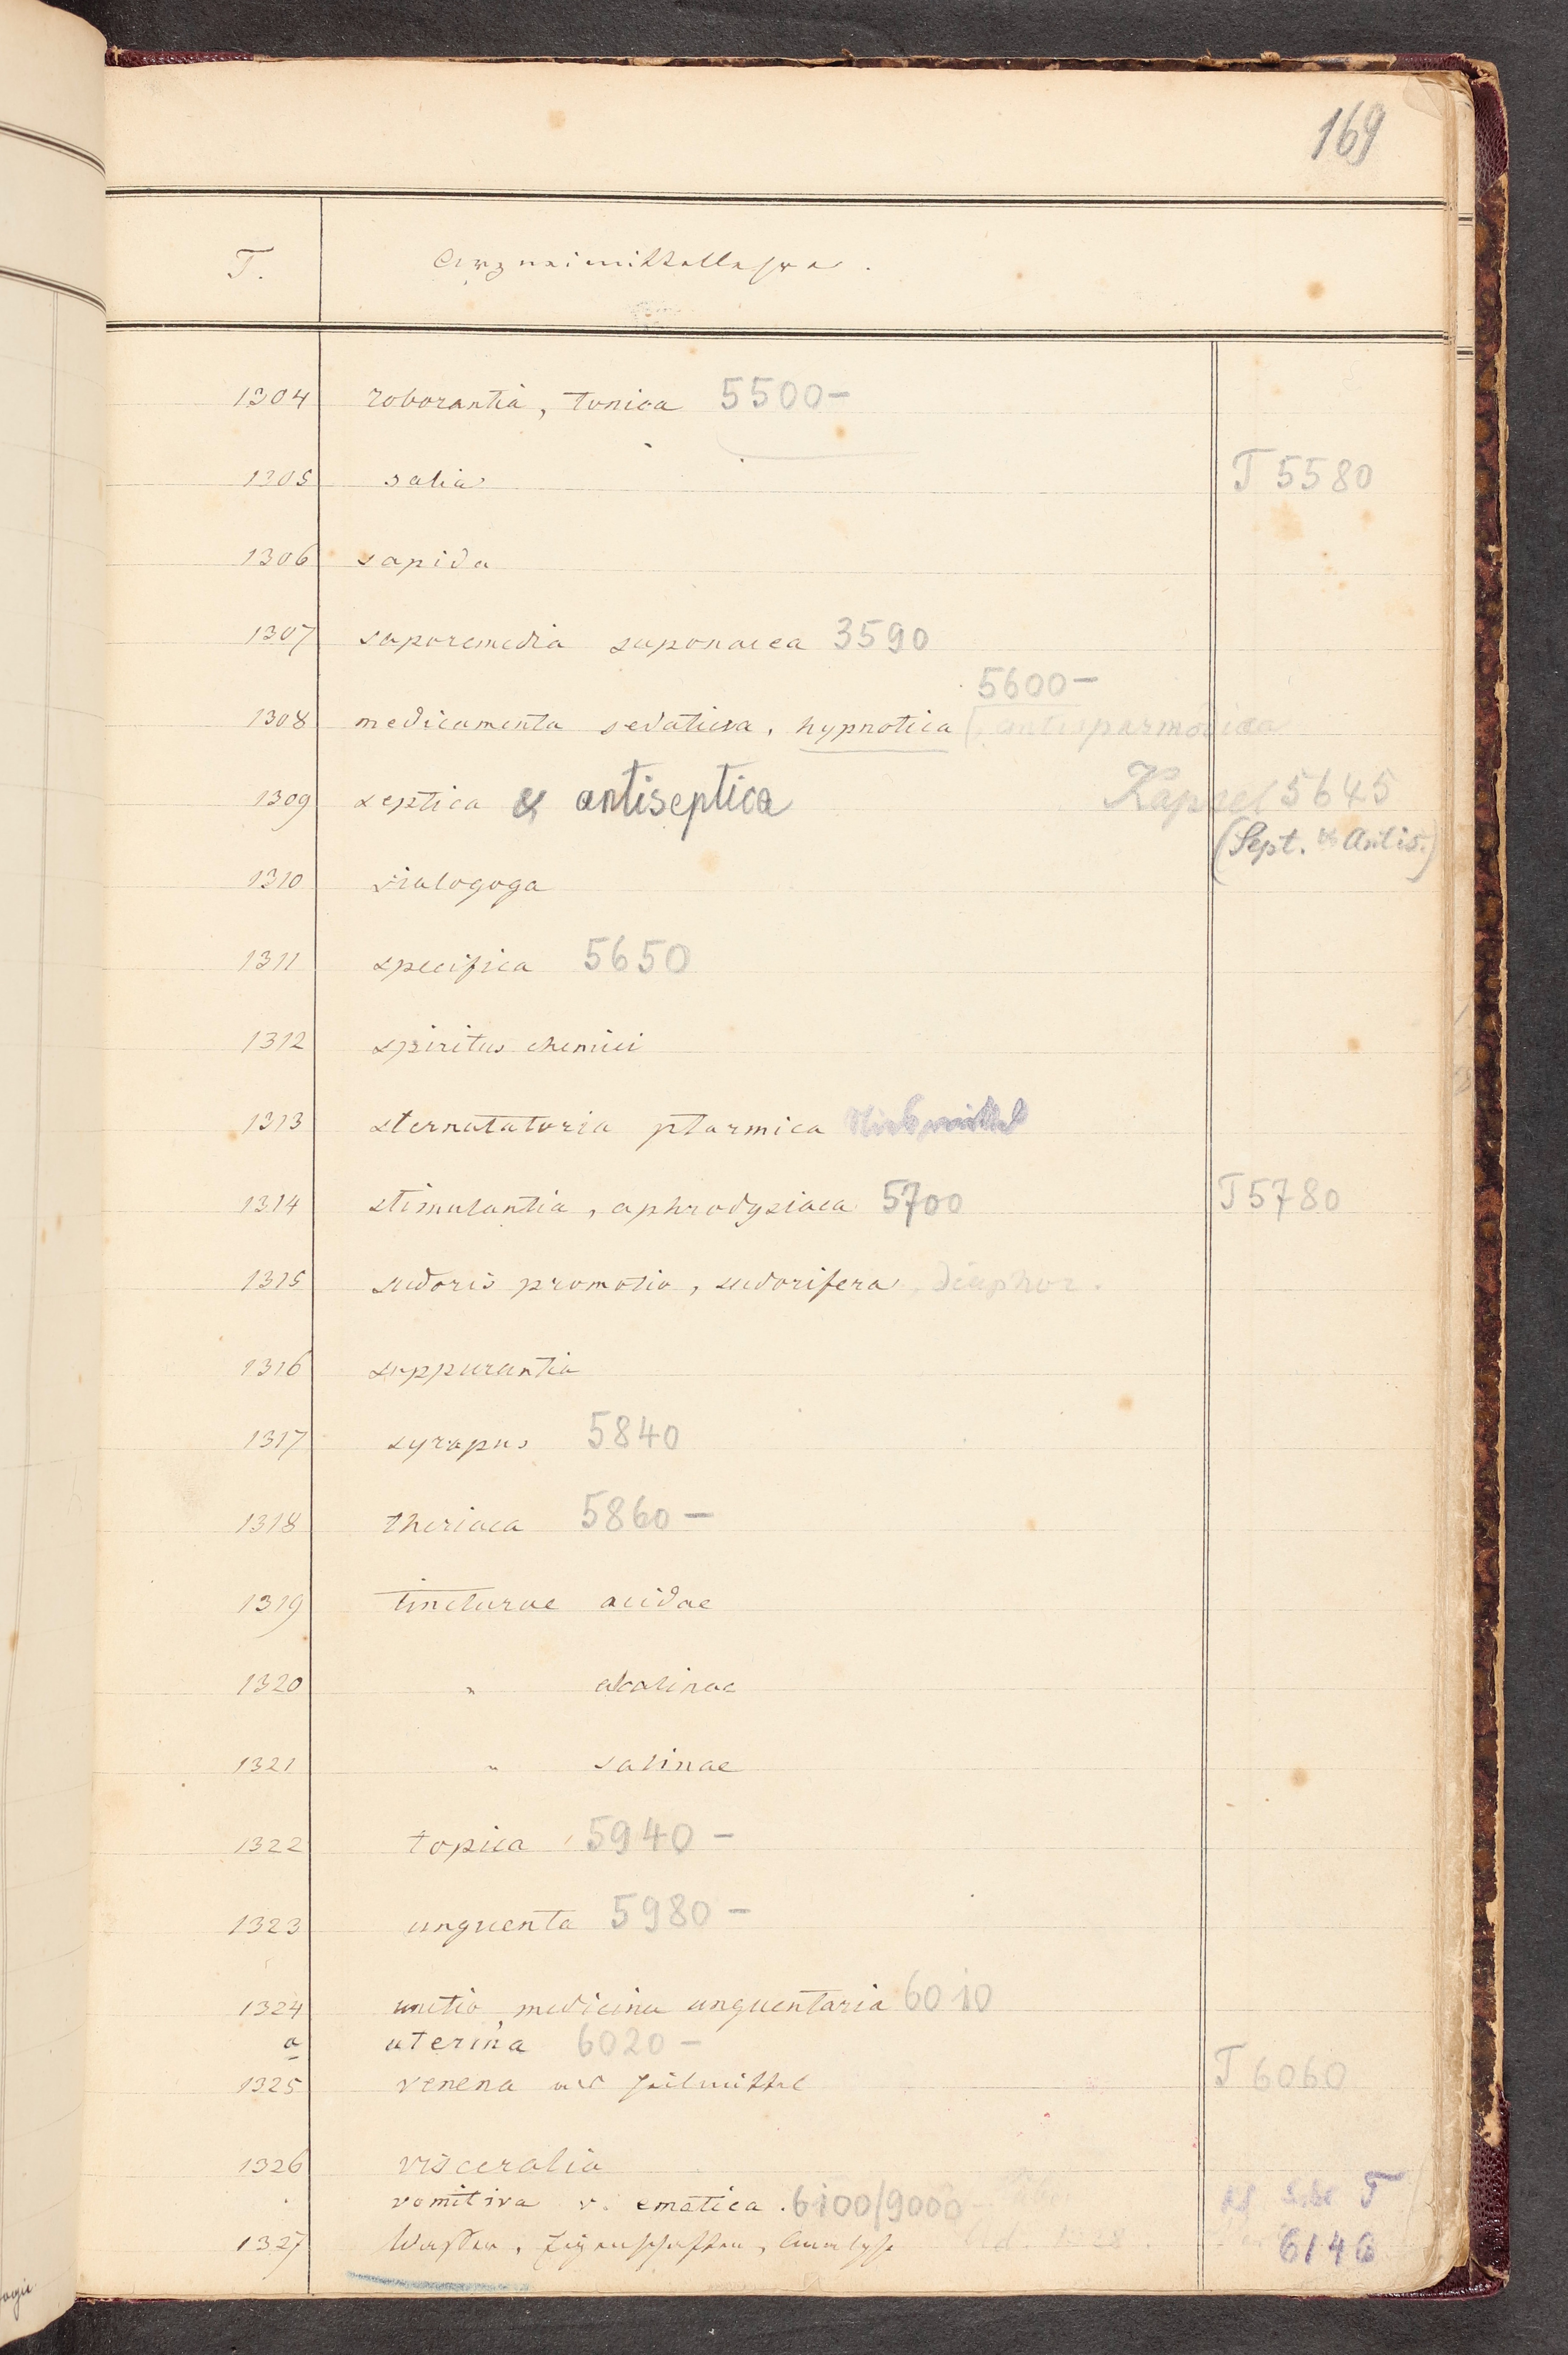 169
T. Arzneimittellehre.
1304 roborantia, tonica 5500-
1305 salia T 5580
1306 sapida
1307 saporemedia saponacea 3590
5600-
1308 medicamenta sedativa, hypnotica, antispasmodica
1309 septica & antiseptica Kapsel 5645
(Sept. & Antis.)
1310 sialogoga
1311 specifica 5650
1312 spiritus chemici
1313 sternutatoria ptarmica
1314 stimulantia, aphrodysiaca 5700 T 5780
1315 sudoris promotio, sudorifera, diaphor.
1316 suppurantia
1317 syrapus 5840
1318 theriaca 5860-
1319 tincturae acidae
1320 " alcalinae
1321 " salinae
1322 topica 5940-
1323 unguenta 5980-
1324 unctio, medicina unguentaria 6010
a uterina 6020-
1325 venena als Heilmittel T 6060
1326 visceralia
vomitiva v. emetica. 6100/9000 T
1327 Wasser, Eigenschaften, Analyse 6146